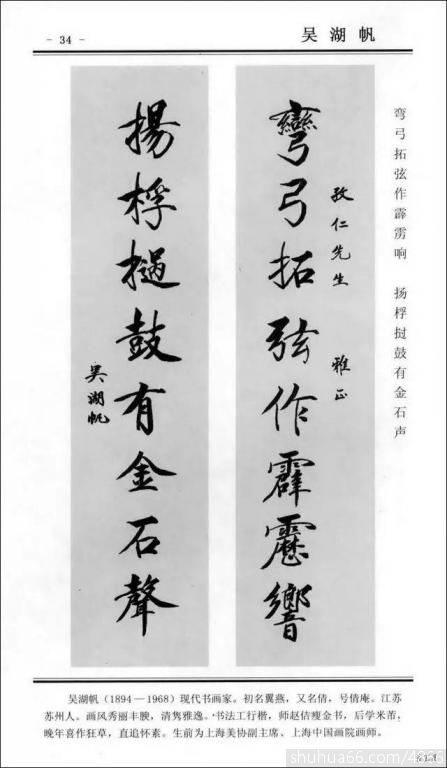 - 34 -
吴湖帆
彎弓拓弦作霹靂響
孜仁先生 雅正
揚桴撾鼓有金石聲
吳湖帆
弯弓拓弦作霹雳响 扬桴挝鼓有金石声
吴湖帆(1894—1968)现代书画家。初名翼燕,又名倩,号倩庵。江苏
苏州人。画风秀丽丰腴,清隽雅逸。书法工行楷,师赵佶瘦金书,后学米芾,
晚年喜作狂草,直追怀素。生前为上海美协副主席、上海中国画院画师。